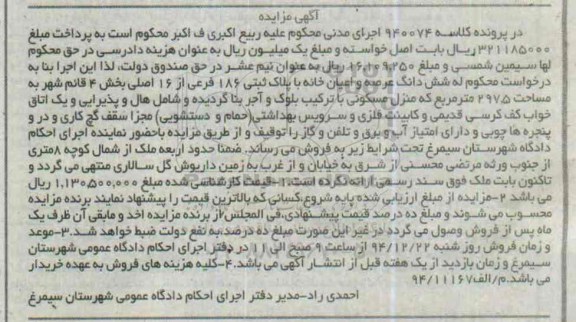 آگهی مزایده
در پرونده کلاسه ۹۴۰۰۷۴ اجرای مدنی محکوم علیه ربیع اکبری ف اکبر محکوم است به پرداخت مبلغ
۳۲۱۱۸۵۰۰۰ ریال بابت اصل خواسته و مبلغ یک میلیون ریال به عنوان هزینه دادرسی در حق محکوم
لها سیمین شمسی و مبلغ ۱۶,۱۰۹,۲۵۰ ریال به عنوان نیم عشر در حق صندوق دولت، لذا این اجرا بنا به
درخواست محکوم له شش دانگ عرصه و اعیان خانه با پلاک ثبتی ۱۸۶ فرعی از ۱۶ اصلی بخش ۴ قائم شهر به
مساحت ۲۹۷۵ مترمربع که منزل مسکونی با ترکیب بلوک و آجر بنا گردیده و شامل هال و پذیرایی و یک اتاق
خواب کف کرسی قدیمی و کابینت فلزی و سرویس بهداشتی(حمام و دستشویی) مجزا سقف گچ کاری و در و
پنجره ها چوبی و دارای امتیاز آب و برق و تلفن و گاز را توقیف و از طریق مزایده باحضور نماینده اجرای احکام
دادگاه شهرستان سیمرغ تحت شرایط زیر به فروش می رساند. ضمنا حدود اربعه ملک از شمال کوچه ۸متری
از جنوب ورثه مرتضی محسنی از شرق به خیابان و از غرب به زمین داریوش گل سالاری منتهی می گردد و
تاکنون بابت ملک فوق سند رسمی ارائه نکرده است.۱-قیمت کارشناسی شده مبلغ ۱,۱۳۰۵۰۰,۰۰۰ ریال
می باشد ۲-مزایده از مبلغ ارزیابی شده پایه شروع کسانی که بالاترین قیمت را پیشنهاد نمایند برنده مزایده
محسوب می شوند و مبلغ ده درصد قیمت پیشنهادی،فی المجلس از برنده مزایده اخذ و مابقی آن ظرف یک
ماه پس از فروش وصول می گردد در غیر این صورت مبلغ ده درصد به نفع دولت ضبط خواهد شد.۳-موعد
و زمان فروش روز شنبه ۹۴/۱۲/۲۲ از ساعت ۹ صبح الی ۱۱ در دفتر اجرای احکام دادگاه عمومی شهرستان
سیمرغ و زمان بازدید از یک هفته قبل از انتشار آگهی می باشد.۴-کلیه هزینه های فروش به عهده خریدار
می باشد.م/الف۹۴/۱۱۱۶۷
احمدی راد-مدیر دفتر اجرای احکام دادگاه عمومی شهرستان سیمرغ